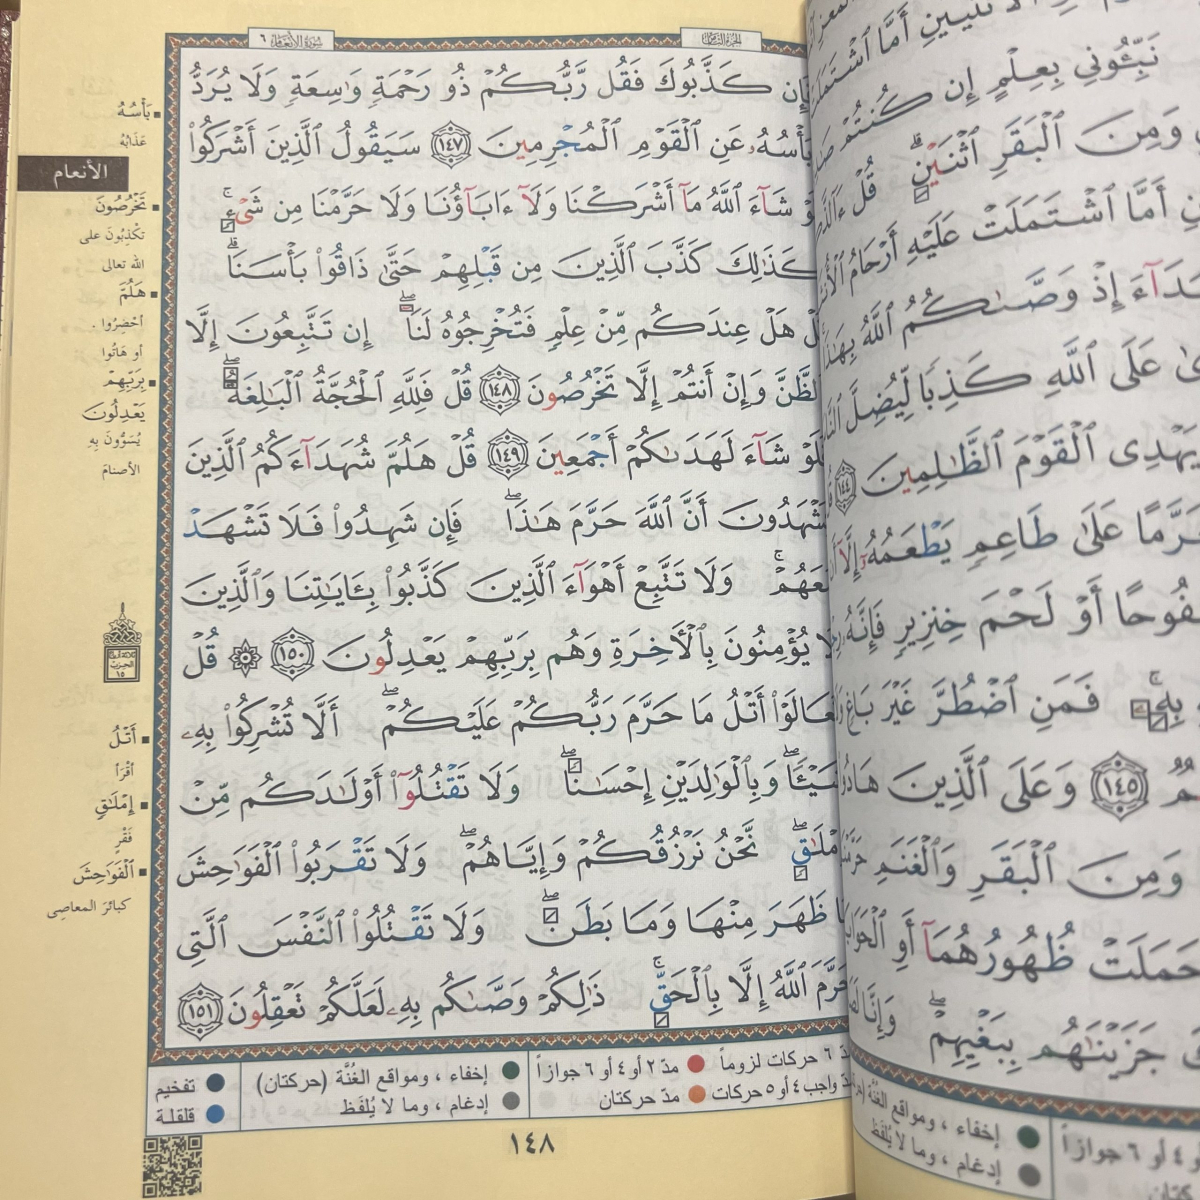 سُورَةُ الأَنْعَام ٦
الجزء الثامن
كَذَّبُوكَ فَقُل رَّبُّكُمْ ذُو رَحْمَةٍ وَٰسِعَةٍ وَلَا يُرَدُّ
بَأْسُهُۥ عَنِ ٱلْقَوْمِ ٱلْمُجْرِمِينَ ١٤٧ سَيَقُولُ ٱلَّذِينَ أَشْرَكُوا۟
لَوْ شَآءَ ٱللَّهُ مَآ أَشْرَكْنَا وَلَآ ءَابَآؤُنَا وَلَا حَرَّمْنَا مِن شَىْءٍ ۚ
كَذَٰلِكَ كَذَّبَ ٱلَّذِينَ مِن قَبْلِهِمْ حَتَّىٰ ذَاقُوا۟ بَأْسَنَا ۗ
هَلْ عِندَكُم مِّنْ عِلْمٍ فَتُخْرِجُوهُ لَنَآ ۖ إِن تَتَّبِعُونَ إِلَّا
ٱلظَّنَّ وَإِنْ أَنتُمْ إِلَّا تَخْرُصُونَ ١٤٨ قُلْ فَلِلَّهِ ٱلْحُجَّةُ ٱلْبَٰلِغَةُ ۖ
فَلَوْ شَآءَ لَهَدَىٰكُمْ أَجْمَعِينَ ١٤٩ قُلْ هَلُمَّ شُهَدَآءَكُمُ ٱلَّذِينَ
يَشْهَدُونَ أَنَّ ٱللَّهَ حَرَّمَ هَٰذَا ۖ فَإِن شَهِدُوا۟ فَلَا تَشْهَدْ
مَعَهُمْ ۚ وَلَا تَتَّبِعْ أَهْوَآءَ ٱلَّذِينَ كَذَّبُوا۟ بِـَٔايَٰتِنَا وَٱلَّذِينَ
لَا يُؤْمِنُونَ بِٱلْـَٔاخِرَةِ وَهُم بِرَبِّهِمْ يَعْدِلُونَ ١٥٠ ۞ قُلْ
تَعَالَوْا۟ أَتْلُ مَا حَرَّمَ رَبُّكُمْ عَلَيْكُمْ ۖ أَلَّا تُشْرِكُوا۟ بِهِۦ
شَيْـًٔا ۖ وَبِٱلْوَٰلِدَيْنِ إِحْسَٰنًا ۖ وَلَا تَقْتُلُوٓا۟ أَوْلَٰدَكُم مِّنْ
إِمْلَٰقٍ ۖ نَّحْنُ نَرْزُقُكُمْ وَإِيَّاهُمْ ۖ وَلَا تَقْرَبُوا۟ ٱلْفَوَٰحِشَ
مَا ظَهَرَ مِنْهَا وَمَا بَطَنَ ۖ وَلَا تَقْتُلُوا۟ ٱلنَّفْسَ ٱلَّتِى
حَرَّمَ ٱللَّهُ إِلَّا بِٱلْحَقِّ ۚ ذَٰلِكُمْ وَصَّىٰكُم بِهِۦ لَعَلَّكُمْ تَعْقِلُونَ ١٥١
بَأْسُهُ
عَذَابُهُ
الأنعام
تَخْرُصُونَ
تكْذِبُونَ على
الله تعالى
هَلُمَّ
أحْضِرُوا .
أو هَاتُوا
بِرَبِّهِمْ
يَعْدِلُونَ
يُسَوُّونَ بِهِ
الأصنامَ
الحِزْبُ
١٥
أَتْلُ
أَقْرَأ
إِمْلَٰقٍ
فَقْرٍ
ٱلْفَوَٰحِشَ
كبائرَ المعاصِي
٦ حركات لزوماً
مدّ ٢ أو ٤ أو ٦ جوازاً
واجب ٤ أو ٥ حركات
مدّ حركتان
إخفاء ، ومواقع الغُنَّة (حركتان)
إدغام ، وما لا يُلفَظ
تفخيم
قلقلة
١٤٨
أَمَّا ٱشْتَمَلَتْ
نَبِّـُٔونِى بِعِلْمٍ إِن كُنتُمْ
وَمِنَ ٱلْبَقَرِ ٱثْنَيْنِ ۗ قُلْ
أَمَّا ٱشْتَمَلَتْ عَلَيْهِ أَرْحَامُ
إِذْ وَصَّىٰكُمُ ٱللَّهُ بِهَٰذَا
عَلَى ٱللَّهِ كَذِبًا لِّيُضِلَّ
يَهْدِى ٱلْقَوْمَ ٱلظَّٰلِمِينَ ١٤٤
عَلَىٰ طَاعِمٍ يَطْعَمُهُۥٓ إِلَّآ
أَوْ لَحْمَ خِنزِيرٍ فَإِنَّهُۥ
بِهِۦ ۚ فَمَنِ ٱضْطُرَّ غَيْرَ بَاغٍ
١٤٥ وَعَلَى ٱلَّذِينَ
وَمِنَ ٱلْبَقَرِ وَٱلْغَنَمِ
حَمَلَتْ ظُهُورُهُمَآ أَوِ
جَزَيْنَٰهُم بِبَغْيِهِمْ ۖ وَإِنَّا
إخفاء ، ومواقع الغُنَّة
إدغام ، وما لا يُلفَظ
أو ٦ جوازاً